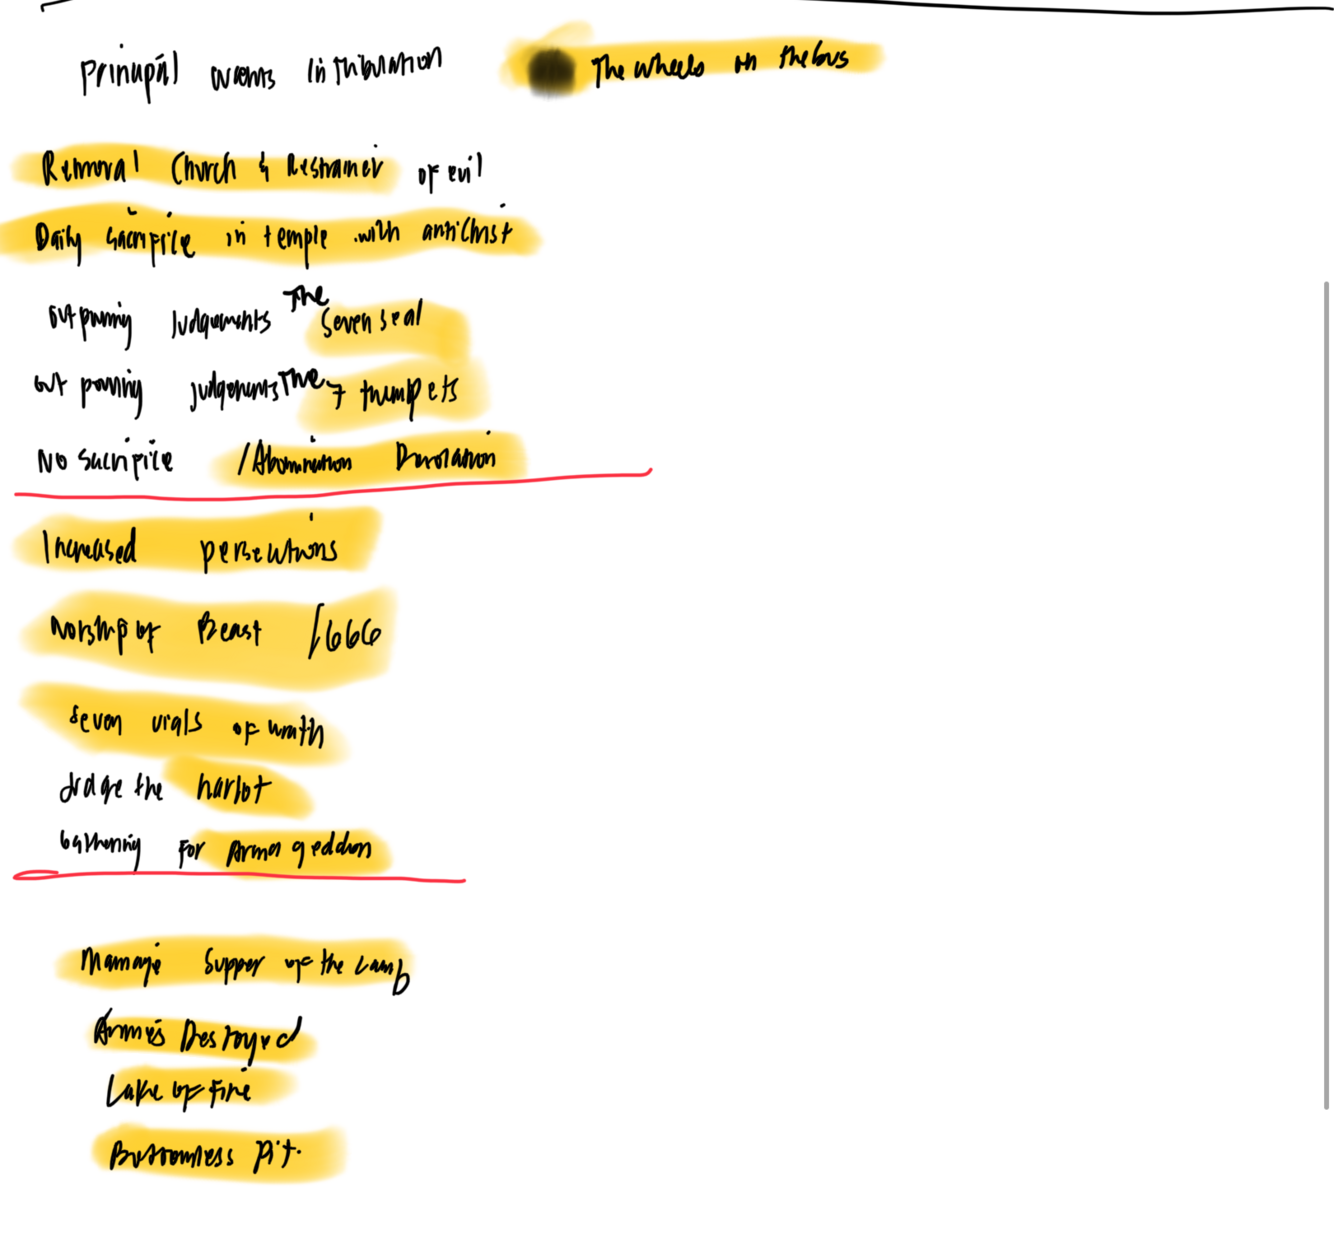 Principal events in tribulation The wheels on the bus
Removal Church & Restrainer of evil
Daily sacrifice in temple with antichrist
out pouring judgements The Seven seal
out pouring judgements The 7 trumpets
No sacrifice / Abomination Desolation
Increased persecutions
worship of Beast / 666
seven vials of wrath
Judge the harlot
Gathering for Armageddon
Marriage Supper of the Lamb
Armies Destroyed
Lake of Fire
Bottomless Pit.